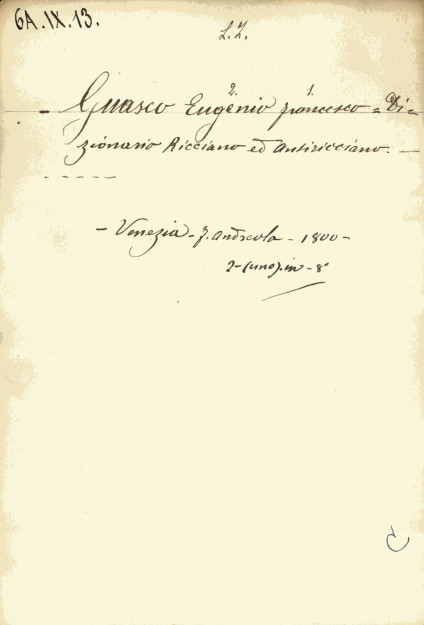 6A.IX.13.
L.Z.
2. 1.
- Guasco Eugenio Francesco = Di=
zionario Ricciano ed Antiricciano. —
- Venezia - F. Andreola - 1800 -
2-(uno). in - 8°